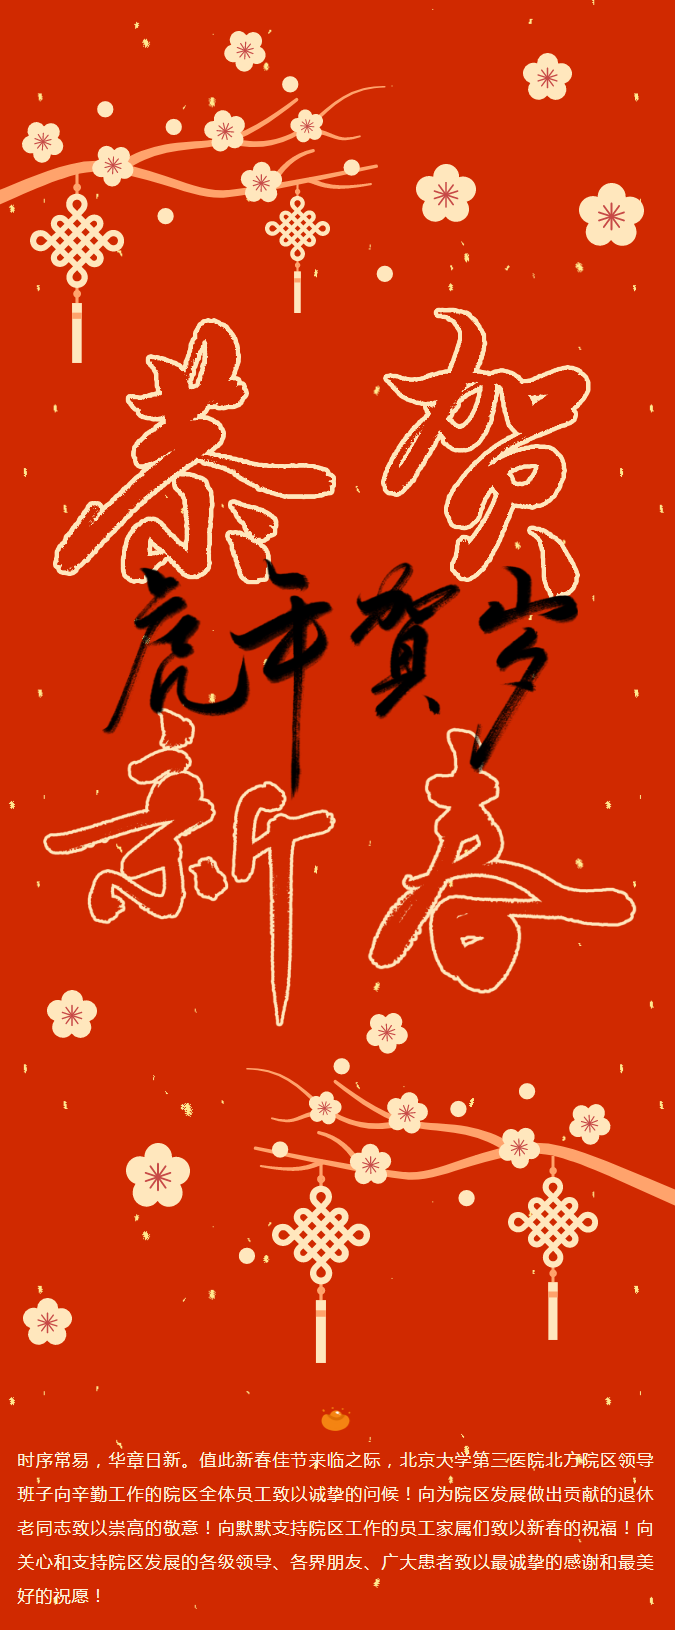 恭贺
虎年賀岁
新春
时序常易，华章日新。值此新春佳节来临之际，北京大学第三医院北方院区领导
班子向辛勤工作的院区全体员工致以诚挚的问候！向为院区发展做出贡献的退休
老同志致以崇高的敬意！向默默支持院区工作的员工家属们致以新春的祝福！向
关心和支持院区发展的各级领导、各界朋友、广大患者致以最诚挚的感谢和最美
好的祝愿！